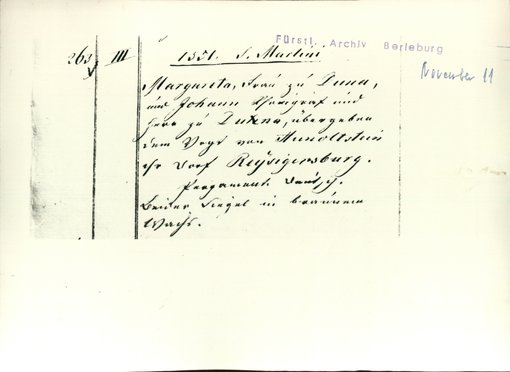 Fürstl. Archiv Berleburg
263 III 1351. S. Martini
November 11
Margareta, Frau zu Duna,
und Johann und
Herr zu übergeben
dem Vogt von Hunoltstein
ihr Dorf Reysigersburg.
Pergament. Deutsch.
Beider Siegel in braunem
Wachs.